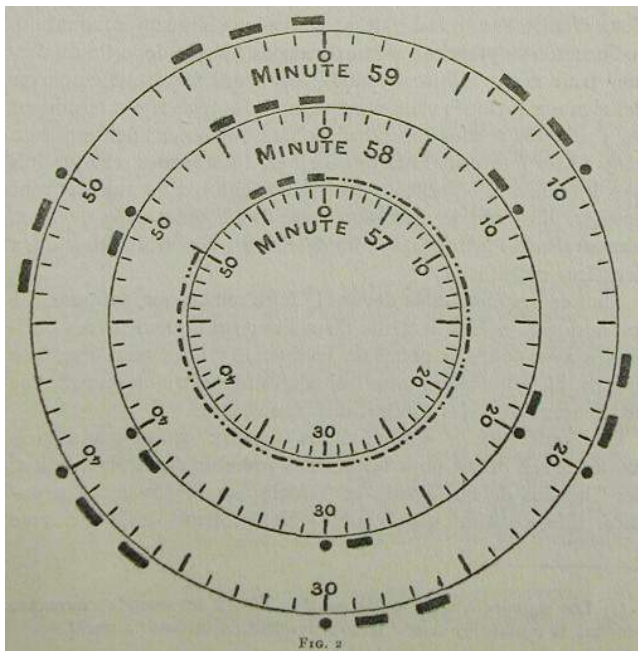 0
MINUTE 59
10
20
30
40
50
0
MINUTE 58
10
20
30
40
50
0
MINUTE 57
10
20
30
40
50
FIG. 2